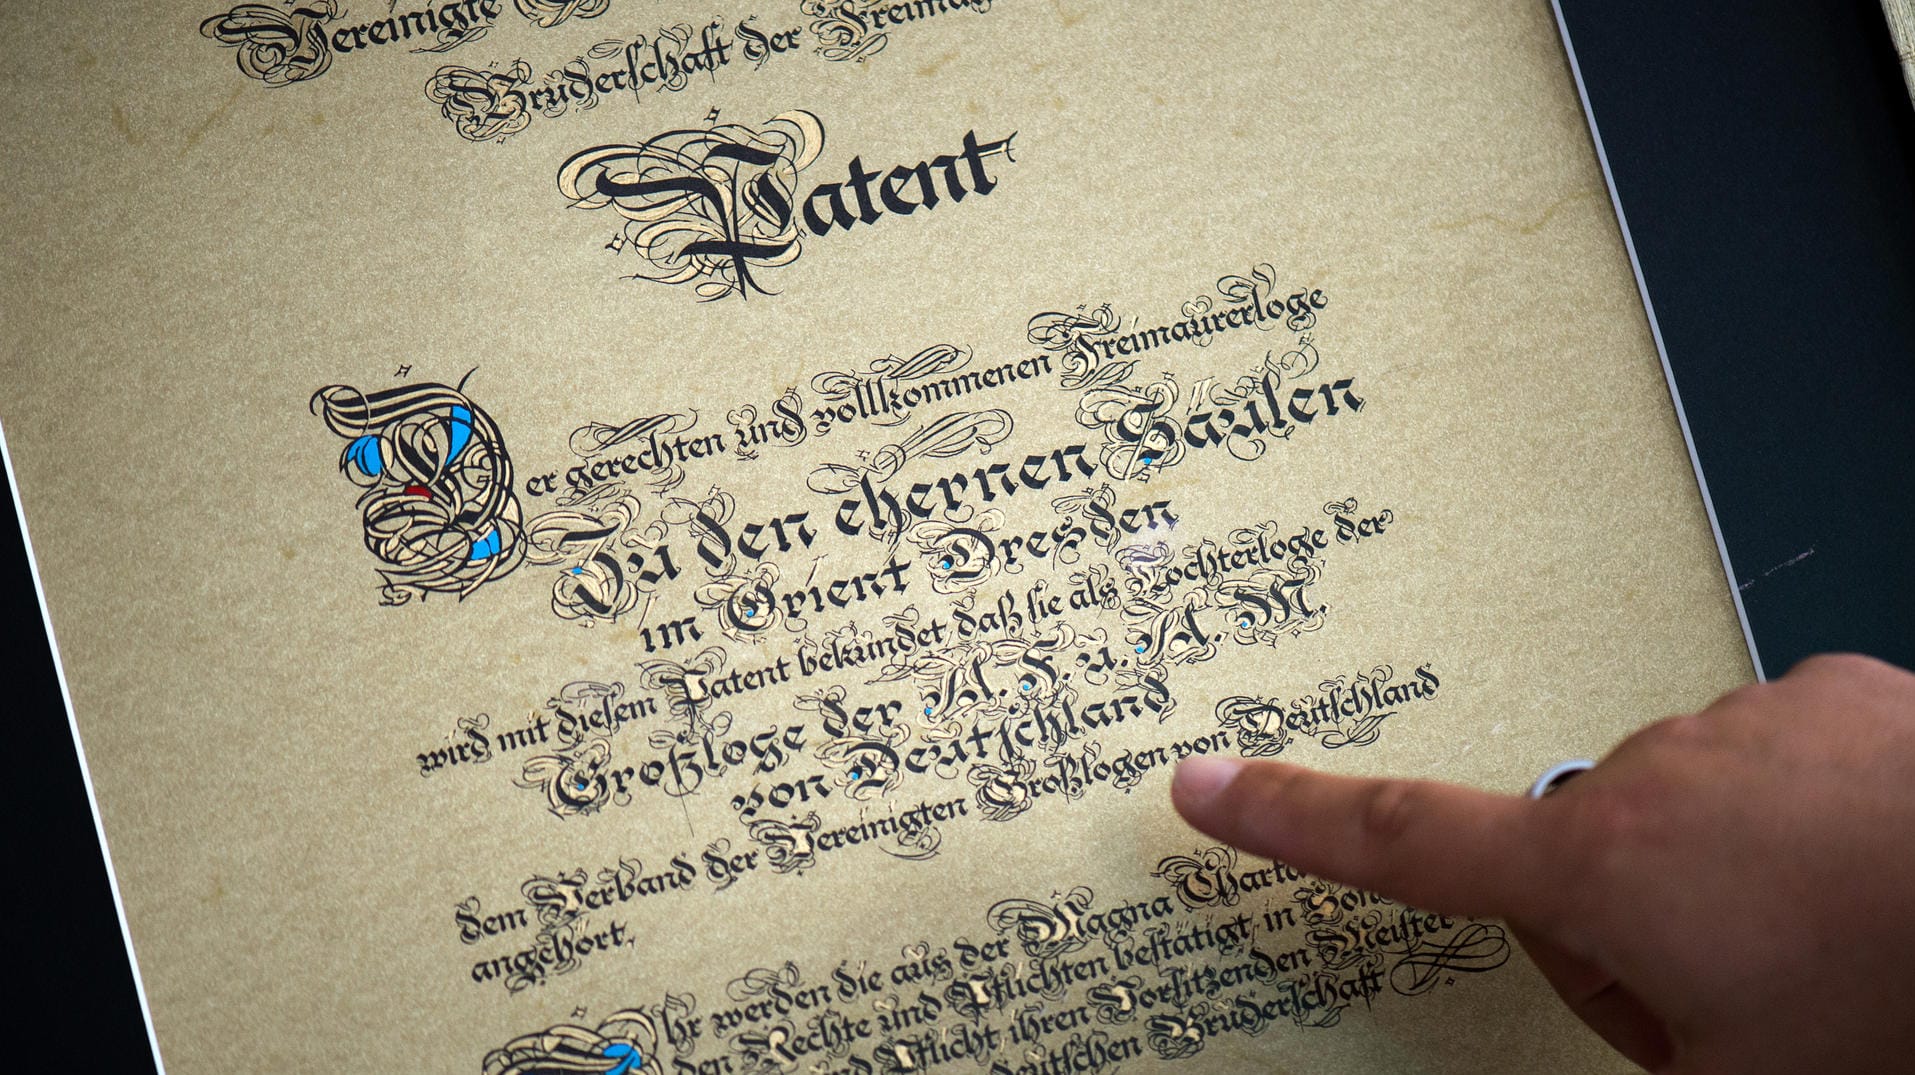 Vereinigte
Bruderschaft der
Patent
Der gerechten und vollkommenen Freimaurerloge
Zu den ehernen Säulen
im Orient Dresden
wird mit diesem Patent bekundet, daß sie als Tochterloge der
Großloge der A. F. u. A. M.
von Deutschland
dem Verband der Vereinigten Großlogen von Deutschland
angehört.
Ihr werden die aus der Magna
den Rechte und Pflichten bestätigt, in
Pflicht, ihren Vorsitzenden Meister
deutschen Bruderschaft